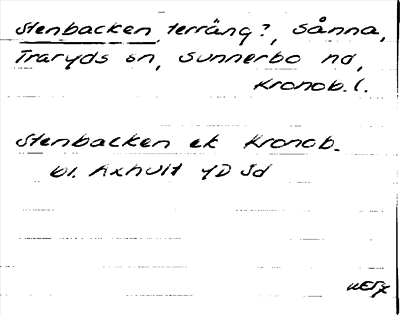 Stenbacken, terräng?, Sånna,
Traryds sn, Sunnerbo hd,
Kronob. l.
Stenbacken ek Kronob.
bl. Axhult 4D Sd